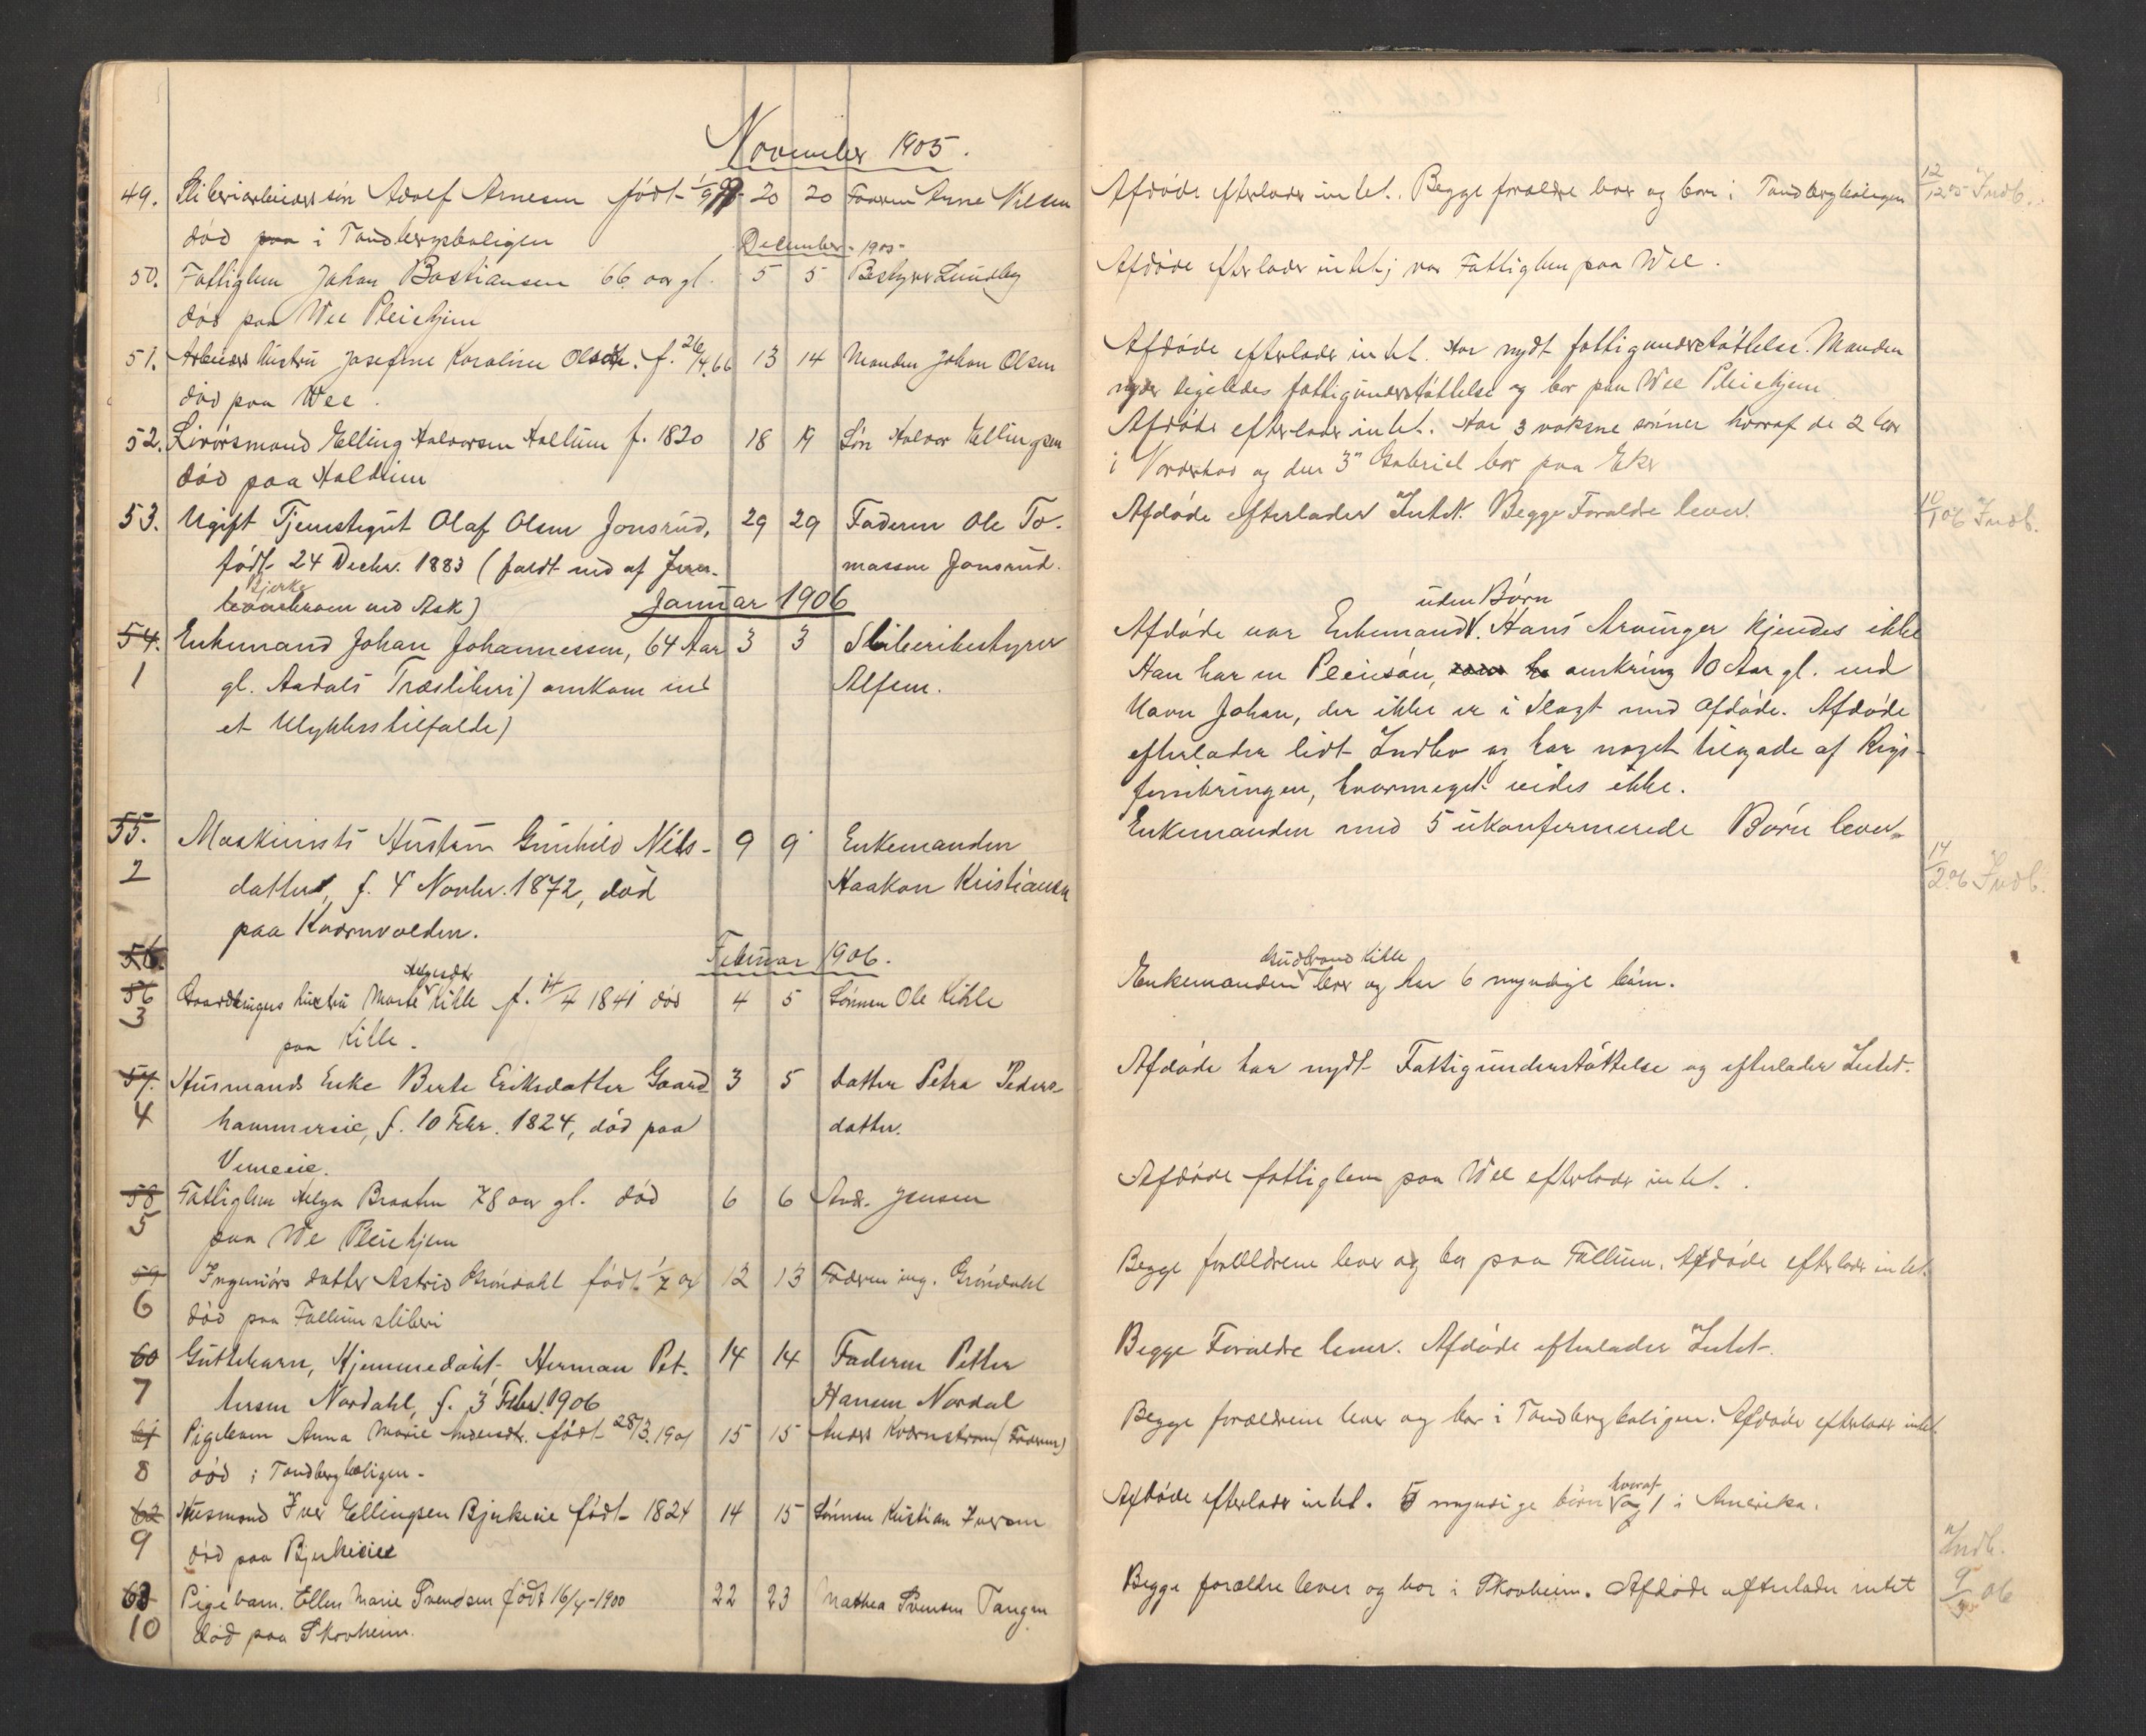 November 1905.
49. Sliberiarbeiders søn Adolf Arnesen født 1/9 99 20 20 Faderen Arne Nilsen
død i Tandbergboligen
December 1905
50. Fattiglem Johan Bastiansen 66 aar gl. 5 5 Bestyrer Lundby
død paa Wee Pleiehjem
51. Arbeiders hustru Josefine Karoline Olsen f. 26/4.66 13 14 Manden Johan Olsen
død paa Wee.
52. Livørsmand Elling Halvorsen Hallum f. 1820 18 19 Søn Halvor Ellingsen
død paa
53. Ugift Tjenestegut Olaf Olsen Jonsrud, 29 29 Faderen Ole To-
født 24 Decbr. 1883 (faldt ned af
massen Jonsrud.
Bjerke
ved Ask)
Januar 1906
54. Enkemand Johan Johannessen, 64 Aar 3 3 Sliberibestyrer
1 gl. Aadals Træsliberi) omkom ved Alfsen.
et Ulykkestilfælde)
55. Maskinists Hustru Gunhild Nils- 9 9 Enkemanden
2 datter, f. 4 Novbr. 1872, død Haakon Kristiansen
paa Kværnvolden.
56. Februar 1906.
Helgesdtr
56 Gaardbrugers hustru Marte Kihle f. 14/4 1841 død 4 5 Sønnen Ole Kihle
3 paa Kihle.
57. Husmands Enke Berte Eriksdatter Gaard- 3 5 Datter Petra Peders-
4 hammereie, f. 10 Febr. 1824, død paa datter.
Vemeeie.
58 Fattiglem Helga Braaten 78 aar gl. død 6 6 And. Jensen
5 paa We Pleiehjem
59 Ingeniørs datter Astrid Grøndahl født 12 13 Faderen ing. Grøndahl
6 død paa Follum sliberi
60 Guttebarn, Hjemmedøbt, Herman Pet- 14 14 Faderen Petter
7 tersen Nordahl, f. 3 Febr. 1906 Hansen Nordal
61 Pigebarn Anna Marie Andersdtr. født 28/3.1901 15 15 Anders Kværnstrøm (Faderen)
8 død i Tandbergboligen.
62 Husmand Iver Ellingsen Bjerkeeie født 1824 14 15 Sønnen Kristian Iversen
9 død paa Bjerkeeie
63 Pigebarn. Ellen Marie Svendsen født 16/4-1900 22 23 Mathea Svensen Tangen
10 død paa Skovheim.
Afdøde efterlader intet. Begge forældre lever og bor i Tandbergboligen 12/12 05 Indb.
Afdøde efterlader intet; var Fattiglem paa Wee.
Afdøde efterlader intet. Har nydt fattigunderstøttelse. Manden
nyder ligeledes fattigunderstøttelse og bor paa Wee Pleiehjem
Afdøde efterlader intet. Har 3 voksne sønner hvoraf de 2 bor
i Norderhov og den 3" Gabriel bor paa Eker
Afdøde efterlader Intet. Begge Forældre lever. 06 Indb.
uden Børn
Afdøde var Enkemand. Hans Arvinger kjendes ikke
Han har en Pleiesøn, omkring 10 Aar gl. ved
Navn Johan, der ikke er i Slægt med Afdøde. Afdøde
efterlader lidt Indbo og har noget tilgode af Rigs-
forsikringen, hvormeget vides ikke.
Enkemanden med 5 ukonfirmerede Børn lever.
14/2 06 Indb.
Gudbrand Kihle
Enkemanden lever og har 6 myndige børn.
Afdøde har nydt Fattigunderstøttelse og efterlader Intet.
Afdøde fattiglem paa Wee efterlader intet.
Begge forældrene lever og bor paa Follum. Afdøde efterlader intet.
Begge Forældre lever. Afdøde efterlader Intet.
Begge forældrene lever og bor i Tandbergboligen. Afdøde efterlader intet.
hvoraf
Afdøde efterlader intet. 5 myndige børn og 1 i Amerika.
Indb.
Begge forældre lever og bor i Skovheim. Afdøde efterlader intet 9/3 06